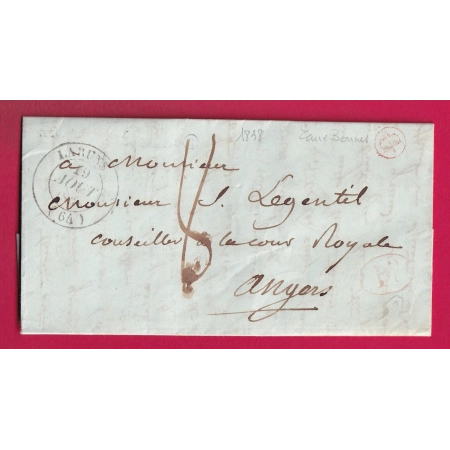 1838
LARUNS
19
AOUT
(64)
à Monsieur
Monsieur J. Legentil
conseiller à la cour Royale
Angers